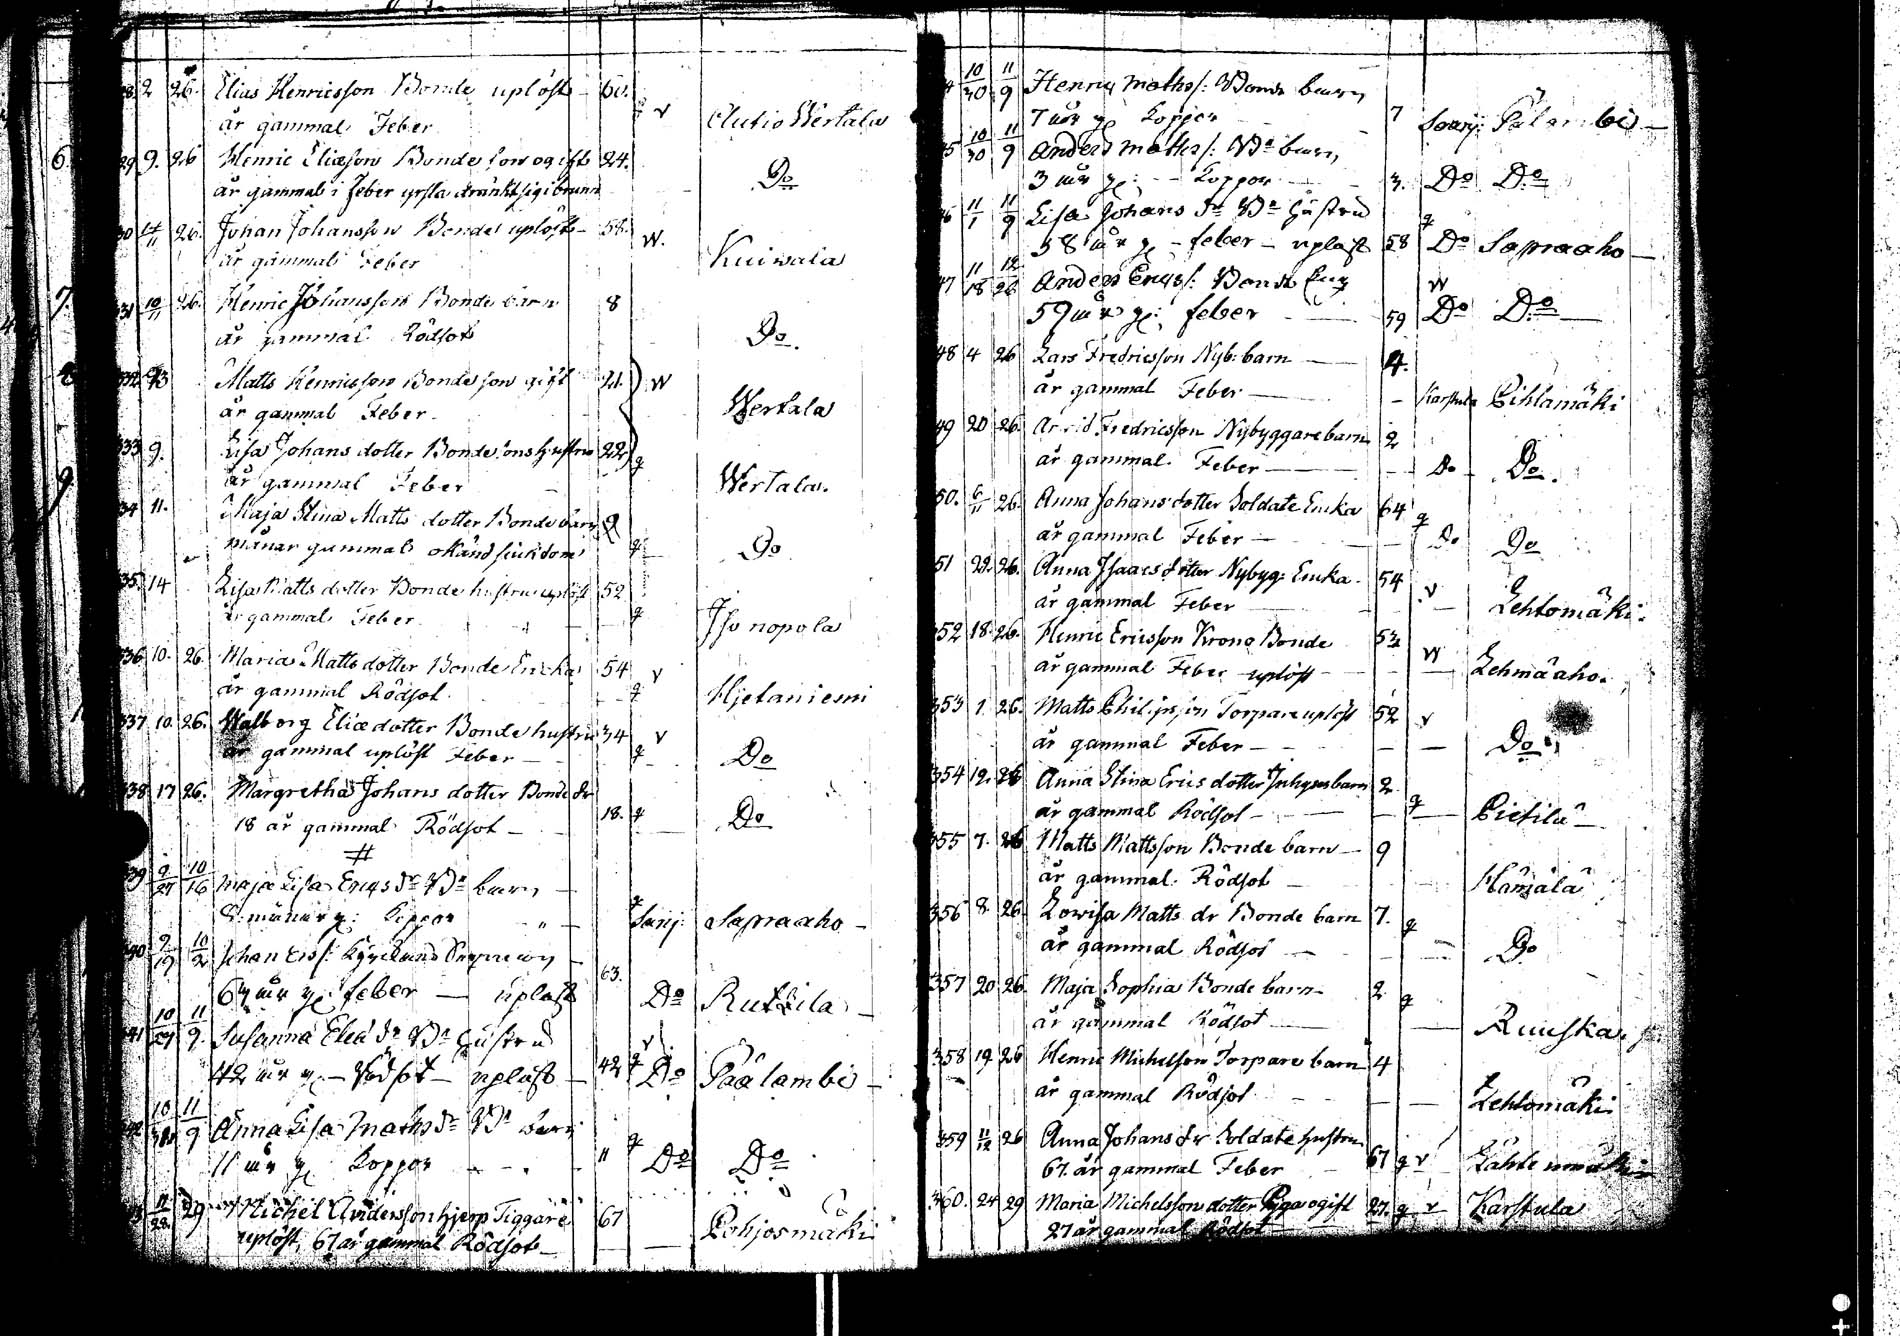 28. 2 26. Elias Henricsson Bonde uplöst 60. v Autio Wertala
år gammal Feber
6. 29 9. 26 Henric Eliasson Bonde son ogift 24. Do
år gammal i Feber yrsla dränkt sig i brunn
30 26. Johan Johansson Bonde uplöst 58. w. Kuiwala
år gammal Feber
7. 331 10/11 26. Henric Johansson Bonde barn 8 Do.
år gammal Rödsot
332 Matts Henricsson Bonde son gift 21. w Wertala
år gammal Feber
333 9. Lisa Johans dotter Bondesons hustru 22 q Wertala.
9. år gammal Feber
34 11. Maja Stina Matts dotter Bonde barn 9 q Do
månar gammal okänd siukdom
335. 14 Lisa Matts dotter Bonde hustru uplöst 52 q Isonopola
år gammal Feber
336 10. 26. Maria Matts dotter Bonde Encka 54 v q Hjetaniemi
år gammal Rödsot
337 10. 26. Walborg Eliæ dotter Bonde hustru 34 v q Do
år gammal uplöst Feber
338 17 26. Margretha Johans dotter Bonde dr
18 år gammal Rödsot 18. q Do
#
339 9/27 10/16 Maja Lisa Erics dr Bde barn
8 månar g: Koppor Saarj: Sapraaho
340 9/19 10/2 Johan Ers/:
63. år g: feber uplöst Do Ruttila
341 10/27 11/9. Susanna Eliæ dr Bde Hustru v
42 år g: Rödsot uplöst 42 q Do Päälambi
342 10/30 11/9 Anna Lisa Maths dr Bde barn
11 år g: Koppor 11 q Do Do
11/28. 29 Michel Andersson hjerp Tiggare 67 Pohjosmäki
uplöst, 67 år gammal Rödsot
44 10/30 11/9 Henric Maths/: Bonde barn
7 år g: Koppor 7 Saarj: Pälambi
45 10/30 11/9 Anders Maths/: Bde barn
3 år g: Koppor 3. Do Do
46 11/1 11/9 Lisa Johans dr Bde Hustru q
58 år g: feber uplöst 58 Do Sapraaho
47 11/18 12/26 Anders Erics/: Bonde Enk w
59 år g: feber 59 Do Do
48 4 26 Lars Fredricsson Nyb: barn 4.
år gammal Feber Karstula Pihlamäki
49 20 26. Arvid Fredricsson Nybyggare barn 2
år gammal Feber Do Do.
50. 6/11 26. Anna Johans dotter Soldate Encka 64 q
år gammal Feber Do Do
51 22. 26. Anna Isaacs dotter Nybyg: Encka 54 v Lehtomäki.
år gammal Feber
352 18. 26. Henric Ericsson Krono Bonde 53 w Lehmäaho.
år gammal Feber uplöst
353 1. 26. Matts Philipsson Torpare uplöst 52 v Do
år gammal Feber
354 12. 26 Anna Stina Erics dotter Inhyses barn 2 q Pietilä
år gammal Rödsot
355 7. 26 Matts Mattsson Bonde barn 9 Hämälä
år gammal Rödsot
356 8. 26. Lowisa Matts dr Bonde barn 7. q Do
år gammal Rödsot
357 20 26. Maja Sophia Bonde barn 2 q Ruuska
år gammal Rödsot
358 19. 26 Henric Michelsson Torpare barn 4 Lehtomäki
år gammal Rödsot
359 11/12 26 Anna Johans dr Soldate hustru
67. år gammal Feber 67 q v
360. 24 29 Maria Michelsson dotter Piga ogift 27. q v Karstula
27 år gammal Rödsot